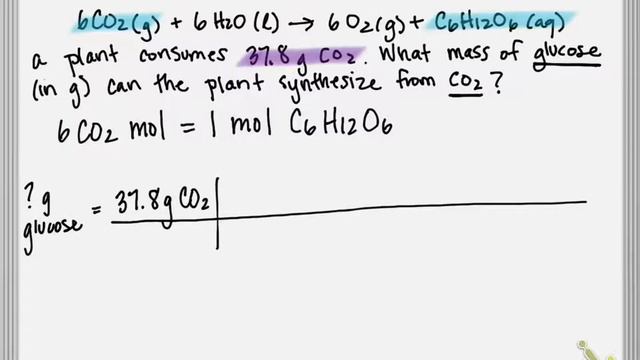 6CO2(g) + 6 H2O(l) → 6 O2(g) + C6H12O6 (aq)
a plant consumes 37.8 g CO2. What mass of glucose
(in g) can the plant synthesize from CO2?
6 CO2 mol = 1 mol C6H12O6
? g
glucose = 37.8 g CO2